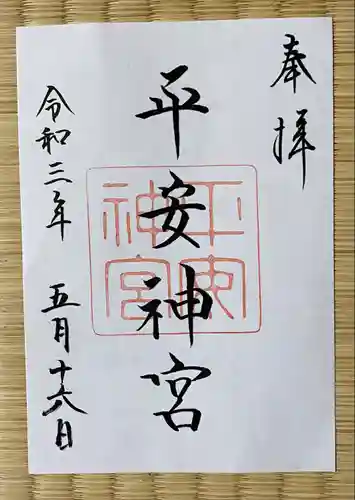 奉拝
平安神宮
平安神宮
令和三年 五月十六日